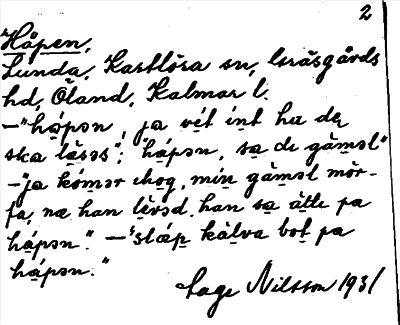 2
Håpen,
Lunda, Kastlösa sn, Gräsgårds
hd, Öland, Kalmar l.
–"håpən, ja vét ínt hu dɛ
ska lɛsəs"; "håpən, sa dɛ gàməl"
–"ja kómər ihog, mín gàməl mör-
fa, næ han lɛvəd, han sa àltı pa
håpən." – "slæp kàlva bot pa
håpən."
Tage Nilsson 1931